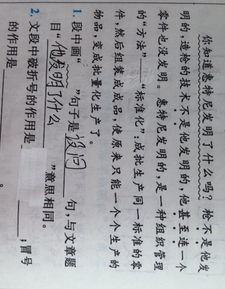 你知道惠特尼发明了什么吗？枪不是他发
明的，造枪的技术不是他发明的，他甚至连一个
零件都没发明。惠特尼发明的，是一种组织管理
的“方法”——“标准化”：成批生产同一标准的零
件，然后组装成成品，使原来只能一个个生产的
物品，变成批量化生产了。
1. 段中画“____”句子是设问句，与文章题
目“他发明了什么”意思相同。
2. 文段中破折号的作用是________；冒号
的作用是________。